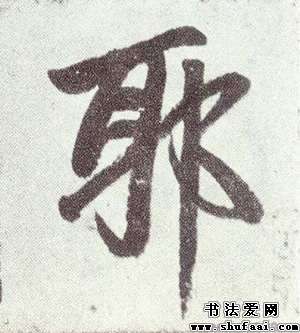 耶
书法爱网
www.shufaai.com